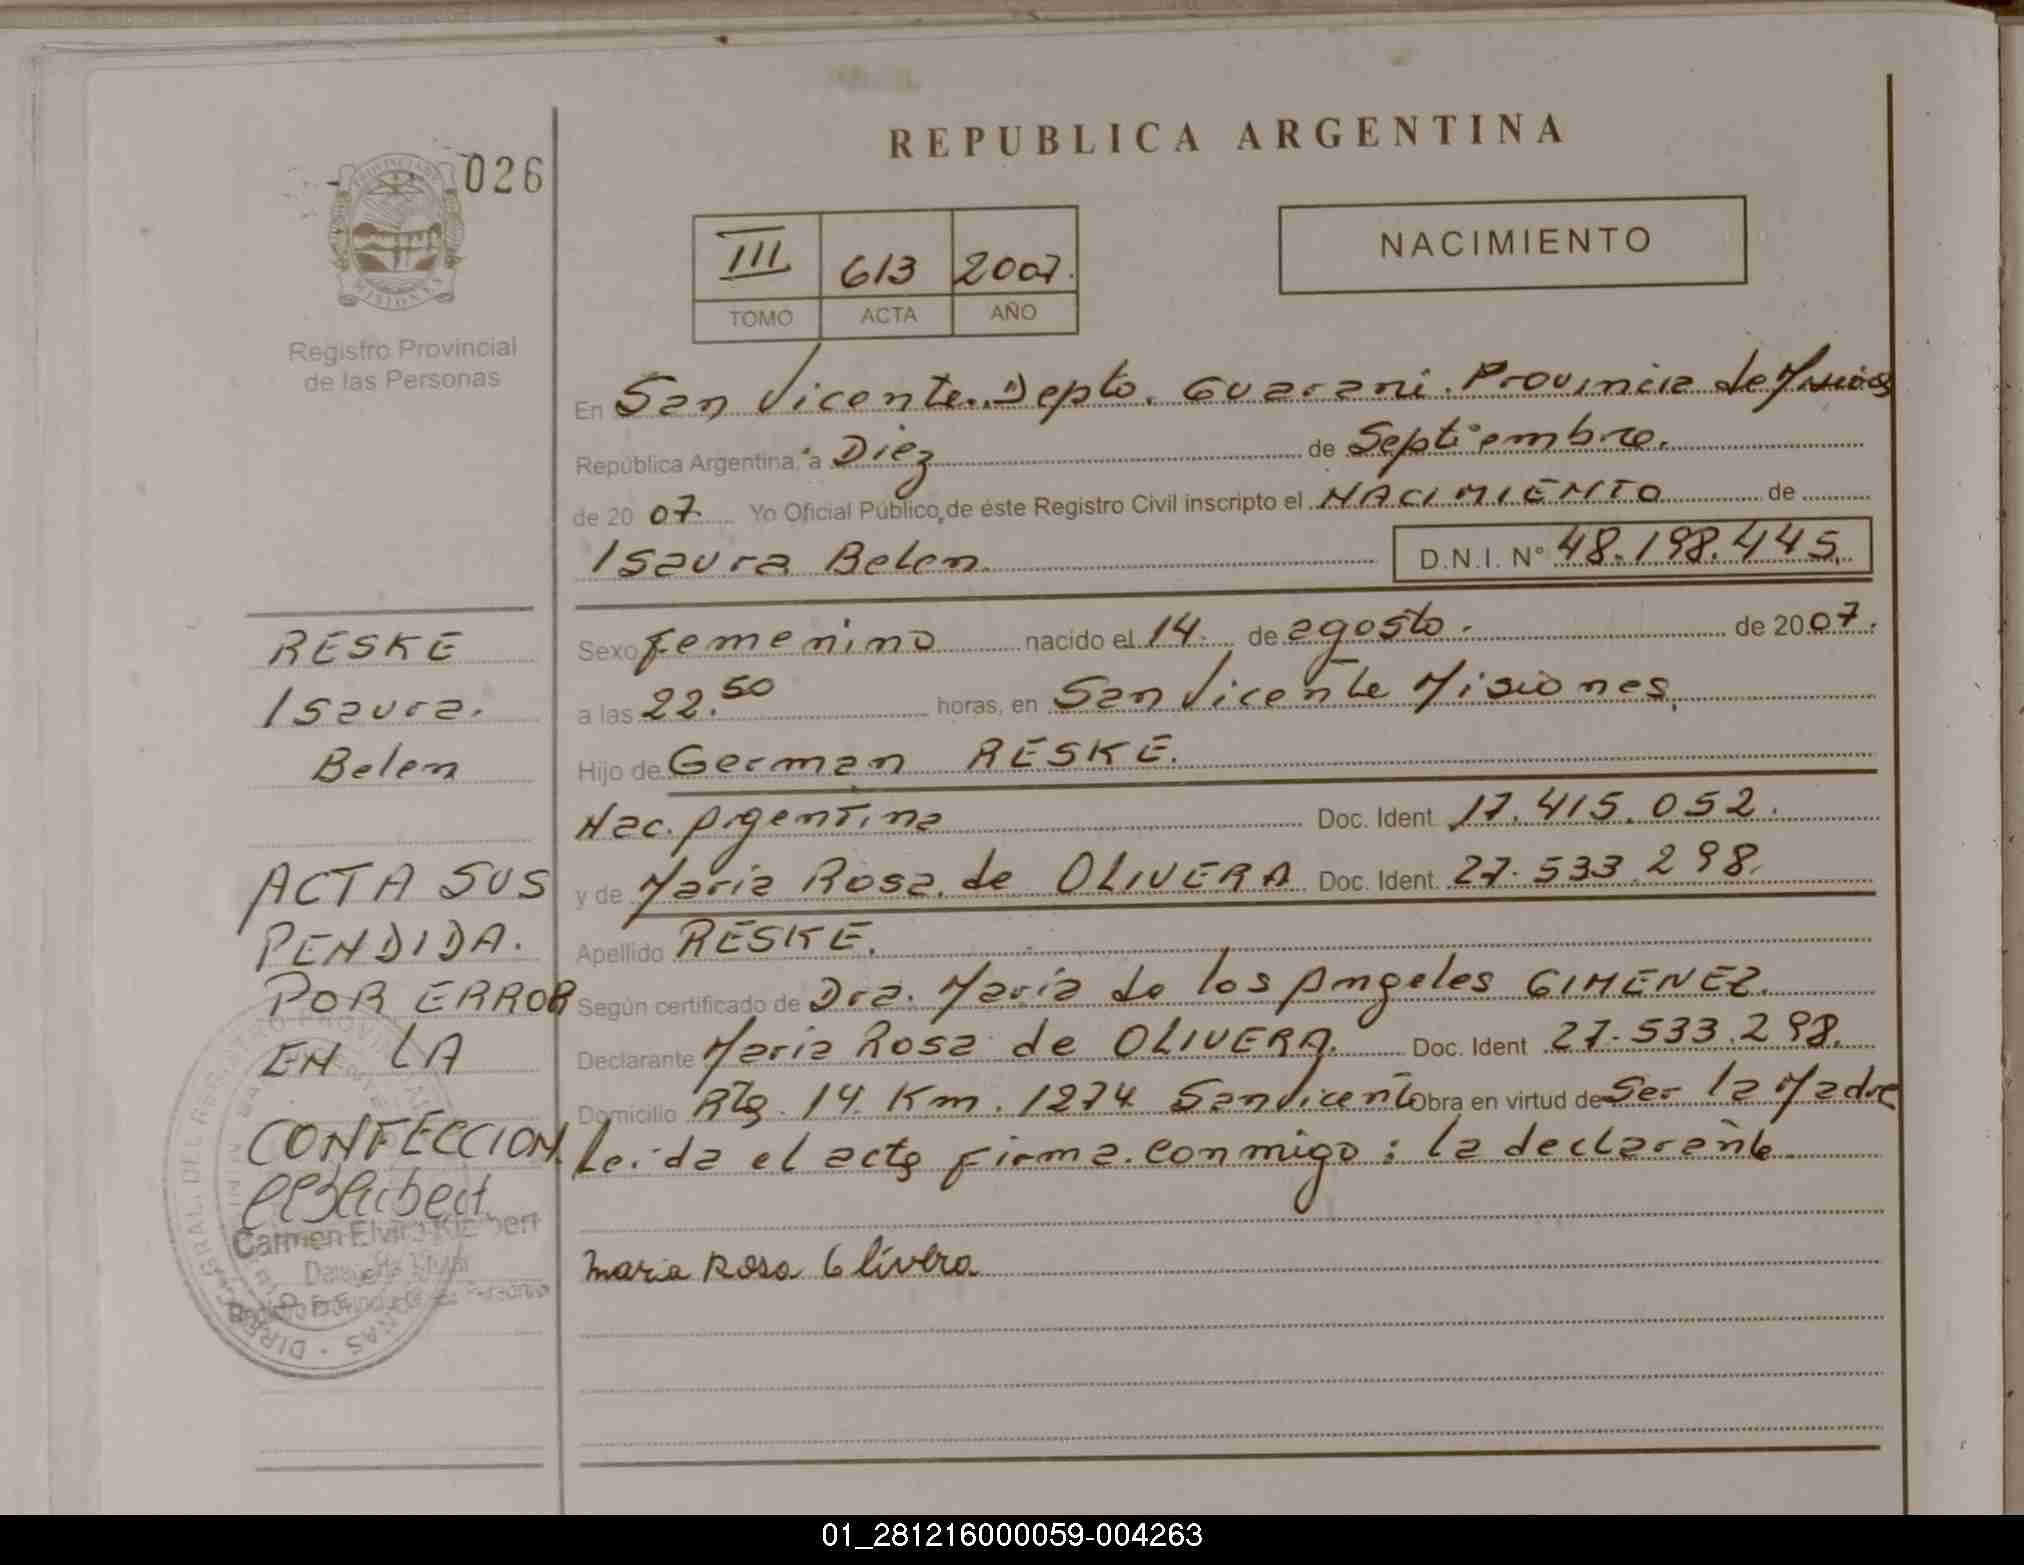 026
REPUBLICA ARGENTINA
NACIMIENTO
III 613 2007.
TOMO ACTA AÑO
PROVINCIA DE MISIONES
Registro Provincial
de las Personas
En San Vicente. Depto. Guarani. Provincia de Misiones
República Argentina, a Diez de Septiembre.
de 20 07. Yo Oficial Público, de éste Registro Civil inscripto el NACIMIENTO de
Isaura Belen. D.N.I. Nº 48.198.445.
Sexo femenino nacido el 14. de agosto. de 2007.
a las 22.50 horas, en San Vicente Misiones,
Hijo de German RESKE.
Nac. Argentina Doc. Ident. 17.415.052.
y de Maria Rosa de OLIVERA Doc. Ident. 27.533.298.
Apellido RESKE.
Según certificado de Dra. María de los Angeles GIMENEZ.
Declarante Maria Rosa de OLIVERA. Doc. Ident 27.533.298.
Domicilio Rta. 14 Km. 1274 San Vicente Obra en virtud de Ser la Madre
Leida el acta firma conmigo: la declarante.
Maria Rosa Olivera
RESKE
Isaura.
Belen
ACTA SUS
PENDIDA.
POR ERROR
EN LA
CONFECCION.
Carmen Elvira
01_281216000059-004263